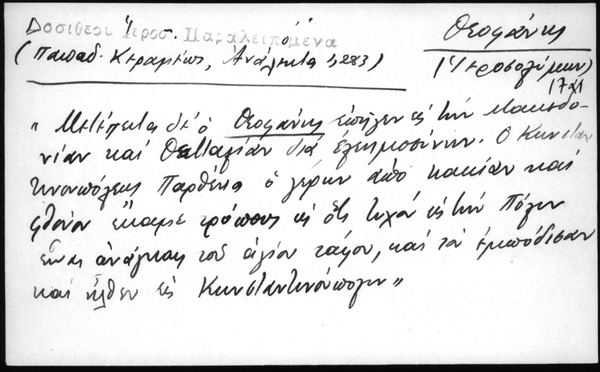 Δοσιθέου Ἱεροσ. Παραλειπόμενα
(Παπαδ. Κεραμέως, Ἀνάλεκτα 1, 283)
Θεοφάνης
(Ἱεροσολύμων)
1721
"Μετέπειτα δὲ ὁ Θεοφάνης ἐπῆγεν εἰς τὴν Μακεδο-
νίαν καὶ Θετταλίαν διὰ ἐλεημοσύνην. Ὁ Κωνσταν
τινουπόλεως Παρθένιος ὁ γέρων ἀπὸ κακίαν καὶ
φθόνον ἔκαμε τρόπους εἰς ὅτι τυχὸν εἰς τὴν Πόλιν
ἀνάγκας τοῦ ἁγίου τάφου, καὶ τὸν ἐμπόδισαν
καὶ ἦλθεν εἰς Κωνσταντινούπολιν"